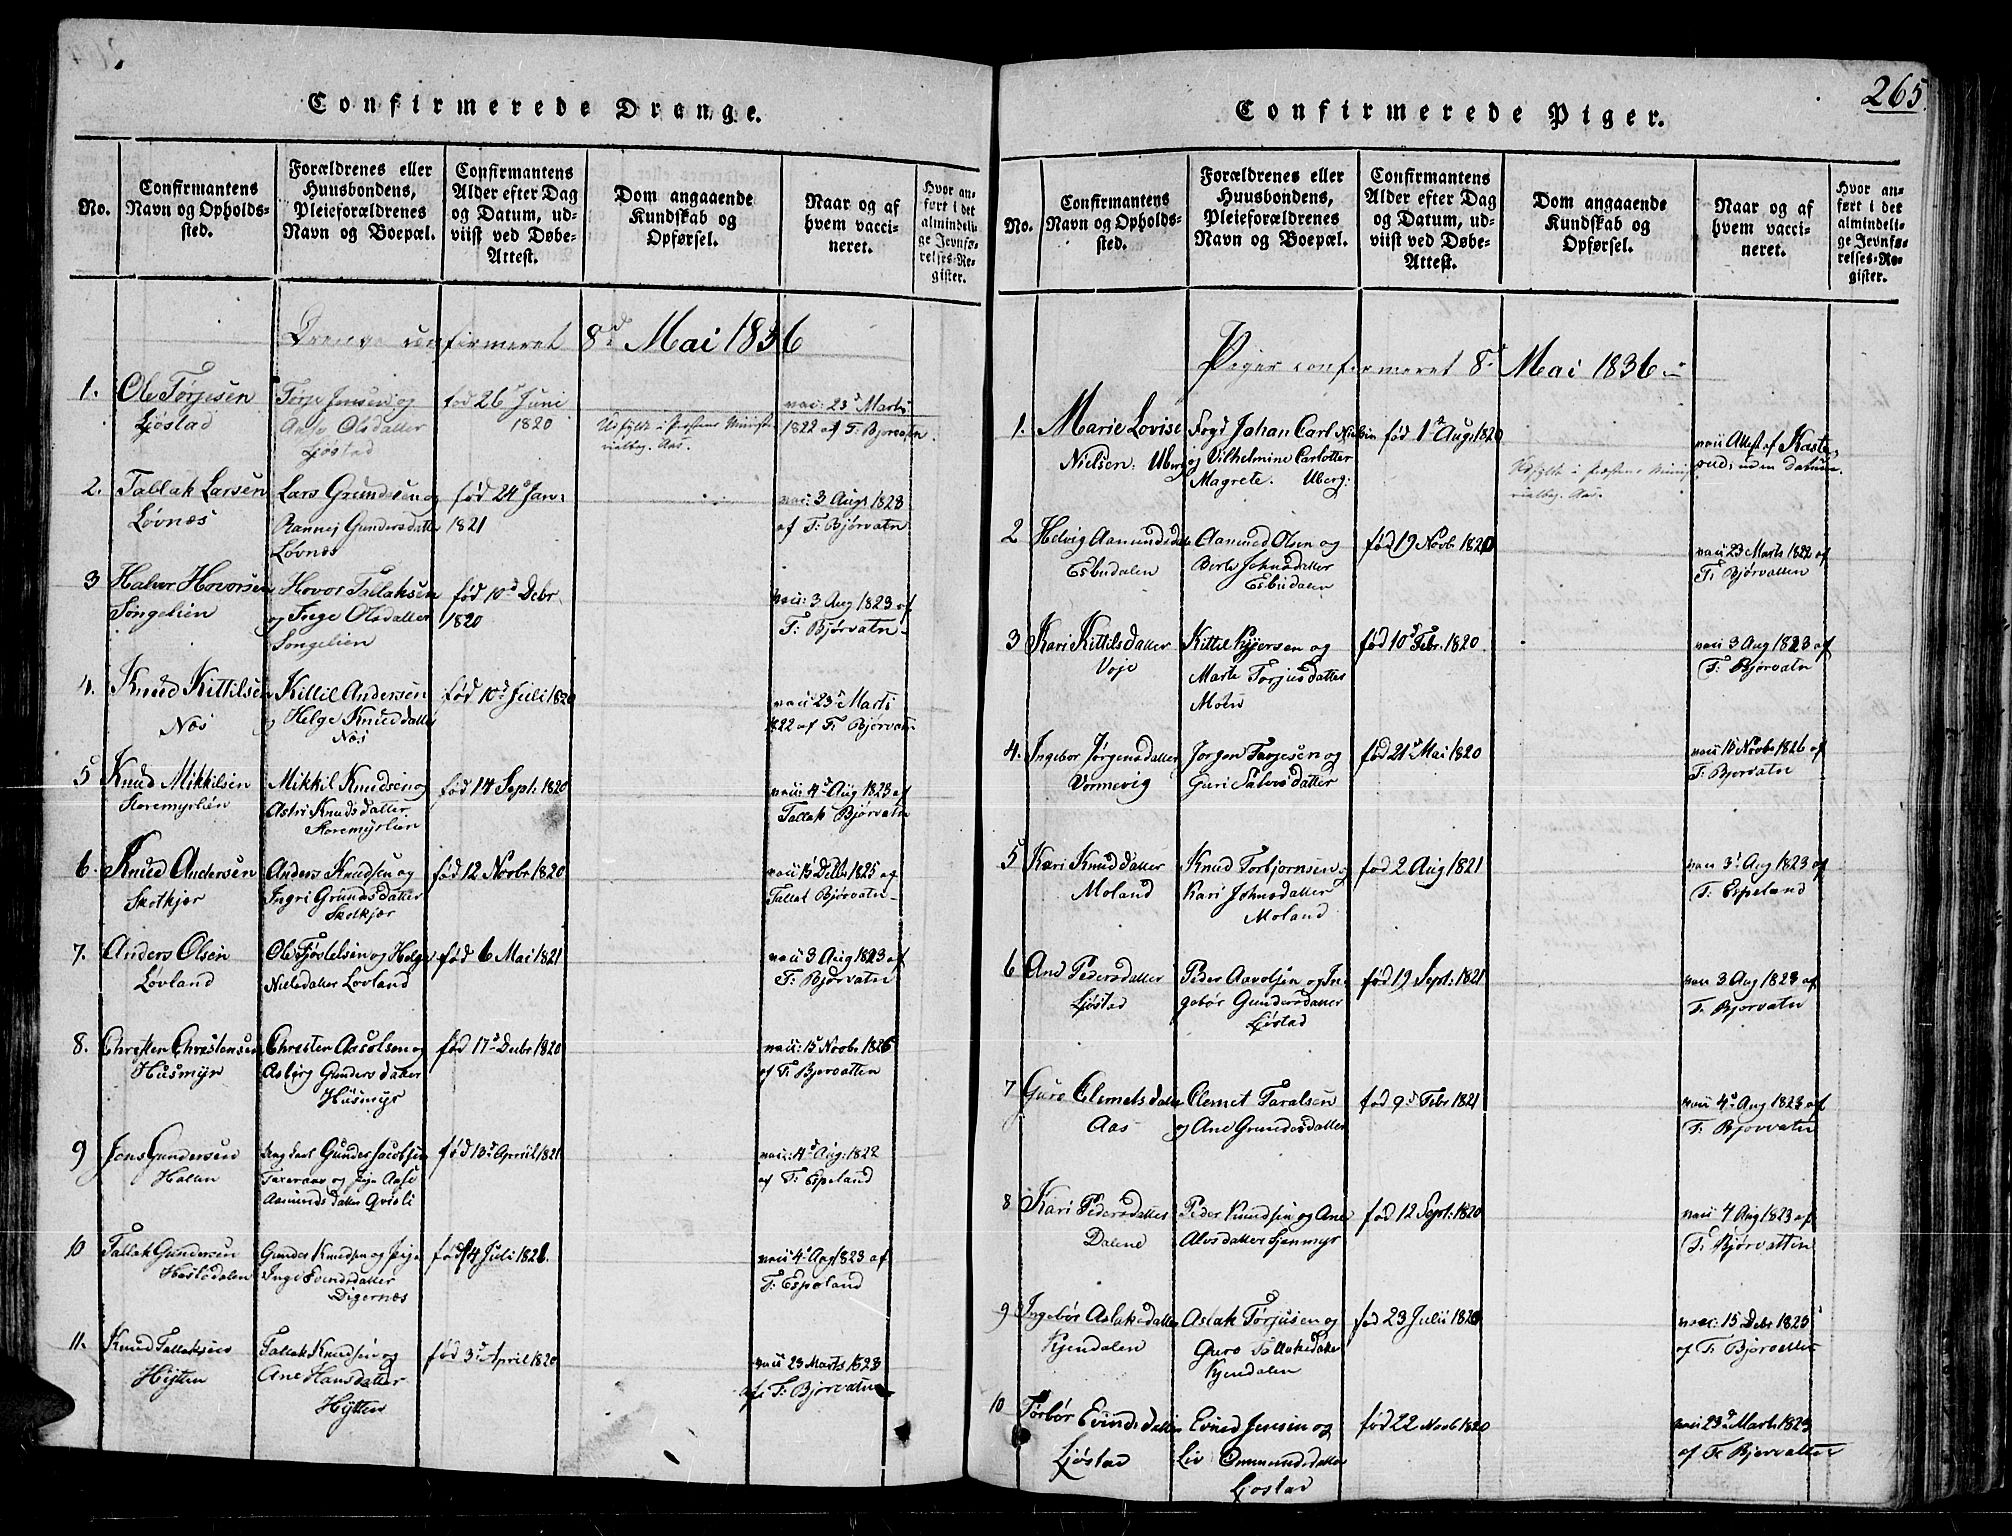 265.
Confirmerede Drange.
No.
Confirmantens
Navn og Opholds-
sted.
Forældrenes eller
Huusbondens,
Pleieforældrenes
Navn og Boepæl.
Confirmantens
Alder efter Dag
og Datum, ud-
viist ved Døbe-
Attest.
Dom angaaende
Kundskab og
Opførsel.
Naar og af
hvem vacci-
neret.
Hvor an-
ført i det
almindeli-
ge Jevnfø-
relses-Re-
gister.
Drenge confirmeret 8d Mai 1836
1. Ole Tørjesen
Ljøstad
Terje Jensen og
Ane Olsdatter
Ljøstad
fød 26d Juni
1820
Udfyldt i Præstens Minist-
rialbog. Aas.
vac: 23d Marts
1822 af T: Bjorvatn.
2. Tallak Larsen
Løvnæs
Lars Gundersen og
Rannej Gundersdatter
Løvnæs
fød 24d Jan:
1821
vac: 3 Augs 1823
af T: Bjørvatn
3 Halvor Hovorsen
Songelien
Hovor Tallaksen
og Inge Olsdatter
Songelien
fød 10d Debr
1820
vac: 3 Aug 1823 af
T: Bjørvatn
4. Knud Kittilsen
Næs
Kittil Andersen
og Helge Knuddatter
Næs
fød 10d Juli 1820
vac: 23d Marts
1822 af T: Bjorvatn
5 Knud Mikkilsen
Storemyrlien
Mikkil Knudsen og
Astri Knudsdatter
Storemyrlien
fød 14 Sept: 1820
vac: 4d Aug 1823 af
Tallak Bjørvatn
6. Knud Andersen
Skotkjær
Anders Knudsen og
Ingri Grundesdatter
Skotkjær
fød 12 Novbr 1820
vac 15 Debr 1825 af
Tallak Bjørvatn
7. Anders Olsen
Løvland
Ole Tjøstelsen og Helge
Nielsdatter Løvland
fød 6 Mai 1821
vac 3 Aug 1823 af
T: Bjørvatn
8. Christen Christensen
Husmyr
Christen Aasolsen og
Asbjørg Gundersdatter
Husmyr
fød 17d Decbr 1820
vac: 15 Novbr 1826
af T: Bjorvatten
9 Jens Gundersen
Hallen
Gunder Jacobsen
og Pige Aase
Aamundsdatter Qvisli
fød 13d Apriil 1821
vac: 4d Aug: 1822
af T: Espeland
10 Tallak Gundersen
Hosledalen
Gunder Knudsen og Pige
Inge Evindsdatter
Digernæs
fød 14 Juli 1821.
vac: 4d Aug 1823 af
T: Espeland
11. Knud Tallaksen
Hytten
Tallak Knudsen og
Ane Hansdatter
Hytten
fød 3d April 1820
vac 23 Marts 1823
af T: Bjørvatn
Confirmerede Piger.
No.
Confirmantens
Navn og Opholds-
sted.
Forældrenes eller
Huusbondens,
Pleieforældrenes
Navn og Boepæl.
Confirmantens
Alder efter Dag
og Datum, ud-
viist ved Døbe-
Attest.
Dom angaaende
Kundskab og
Opførsel.
Naar og af
hvem vacci-
neret.
Hvor an-
ført i det
almindeli-
ge Jevnfø-
relses-Re-
gister.
Piger confirmeret 8d Mai 1836
1. Marie Lovise
Nielsen: Uberg
Fogd Johan Carl Nielsen
og Vilhelmine Carlotter
Magrete. Uberg:
fød 1ste Augs 1820
Udfyldt i Præstens Minist-
rialbog. Aas.
vac Attest af Kaste-
rud, uden datum
2 Helvig Aamundsdatter
Esbudalen
Aamund Olsen og
Berte Johnsdatter
Esbudalen
fød 19 Novbr 1820
vac 23 Marts 1822 af
T: Bjørvatten
3 Kari Kittilsdatter
Voje
Kittil Kjersen og
Marte Torjusdatter
Moen
fød 10d Febr: 1820
vac 3 Aug 1823 af
T: Bjørvatn
4. Ingebor Jørgensdatter
Vormevig
Jorgen Terjesen og
Guri Salvesdatter
fød 21d Mai 1820
vac 15 Novbr 1826 af
T: Bjorvatn
5 Kari Knuddatter
Moland
Knud Torbjornsen og
Kari Johnsdatter
Moland
fød 2 Aug 1821
vac 3d Aug 1823 af
T: Espeland
6 Ane Pedersdatter
Ljøstad
Peder Aavolsen og In-
gebør Gundersdatter
Ljøstad
fød 19 Sept: 1821
vac 3 Aug 1823 af
T: Bjorvatn
7 Guro Clemetsdatter
Aas
Clemet Taralsen
og Ane Grundesdatter
fød 9d Febr 1821
vac 4d Aug 1823 af
T: Bjorvatn
8 Kari Pedersdatter
Dalene
Peder Knudsen og Ane
Alvsdatter Sjenmyr
fød 12 Sept: 1820
vac 4 Aug 1823 af
T: Bjørvatten
9 Ingebør Aslaksdatter
Kjendalen
Aslak Tørjusen og
Guro Tallaksdatter
Kjendalen
fød 23 Julii 1820
vac: 15 Debr 1825
af T: Bjørvatten
10 Tørbør Evindsdatter
Ljøstad
Evind Jensen og
Liv Ommundsdatter
Ljøstad
fød 22 Novb 1820
vac 23d Marts 1823
af T: Bjørvatten